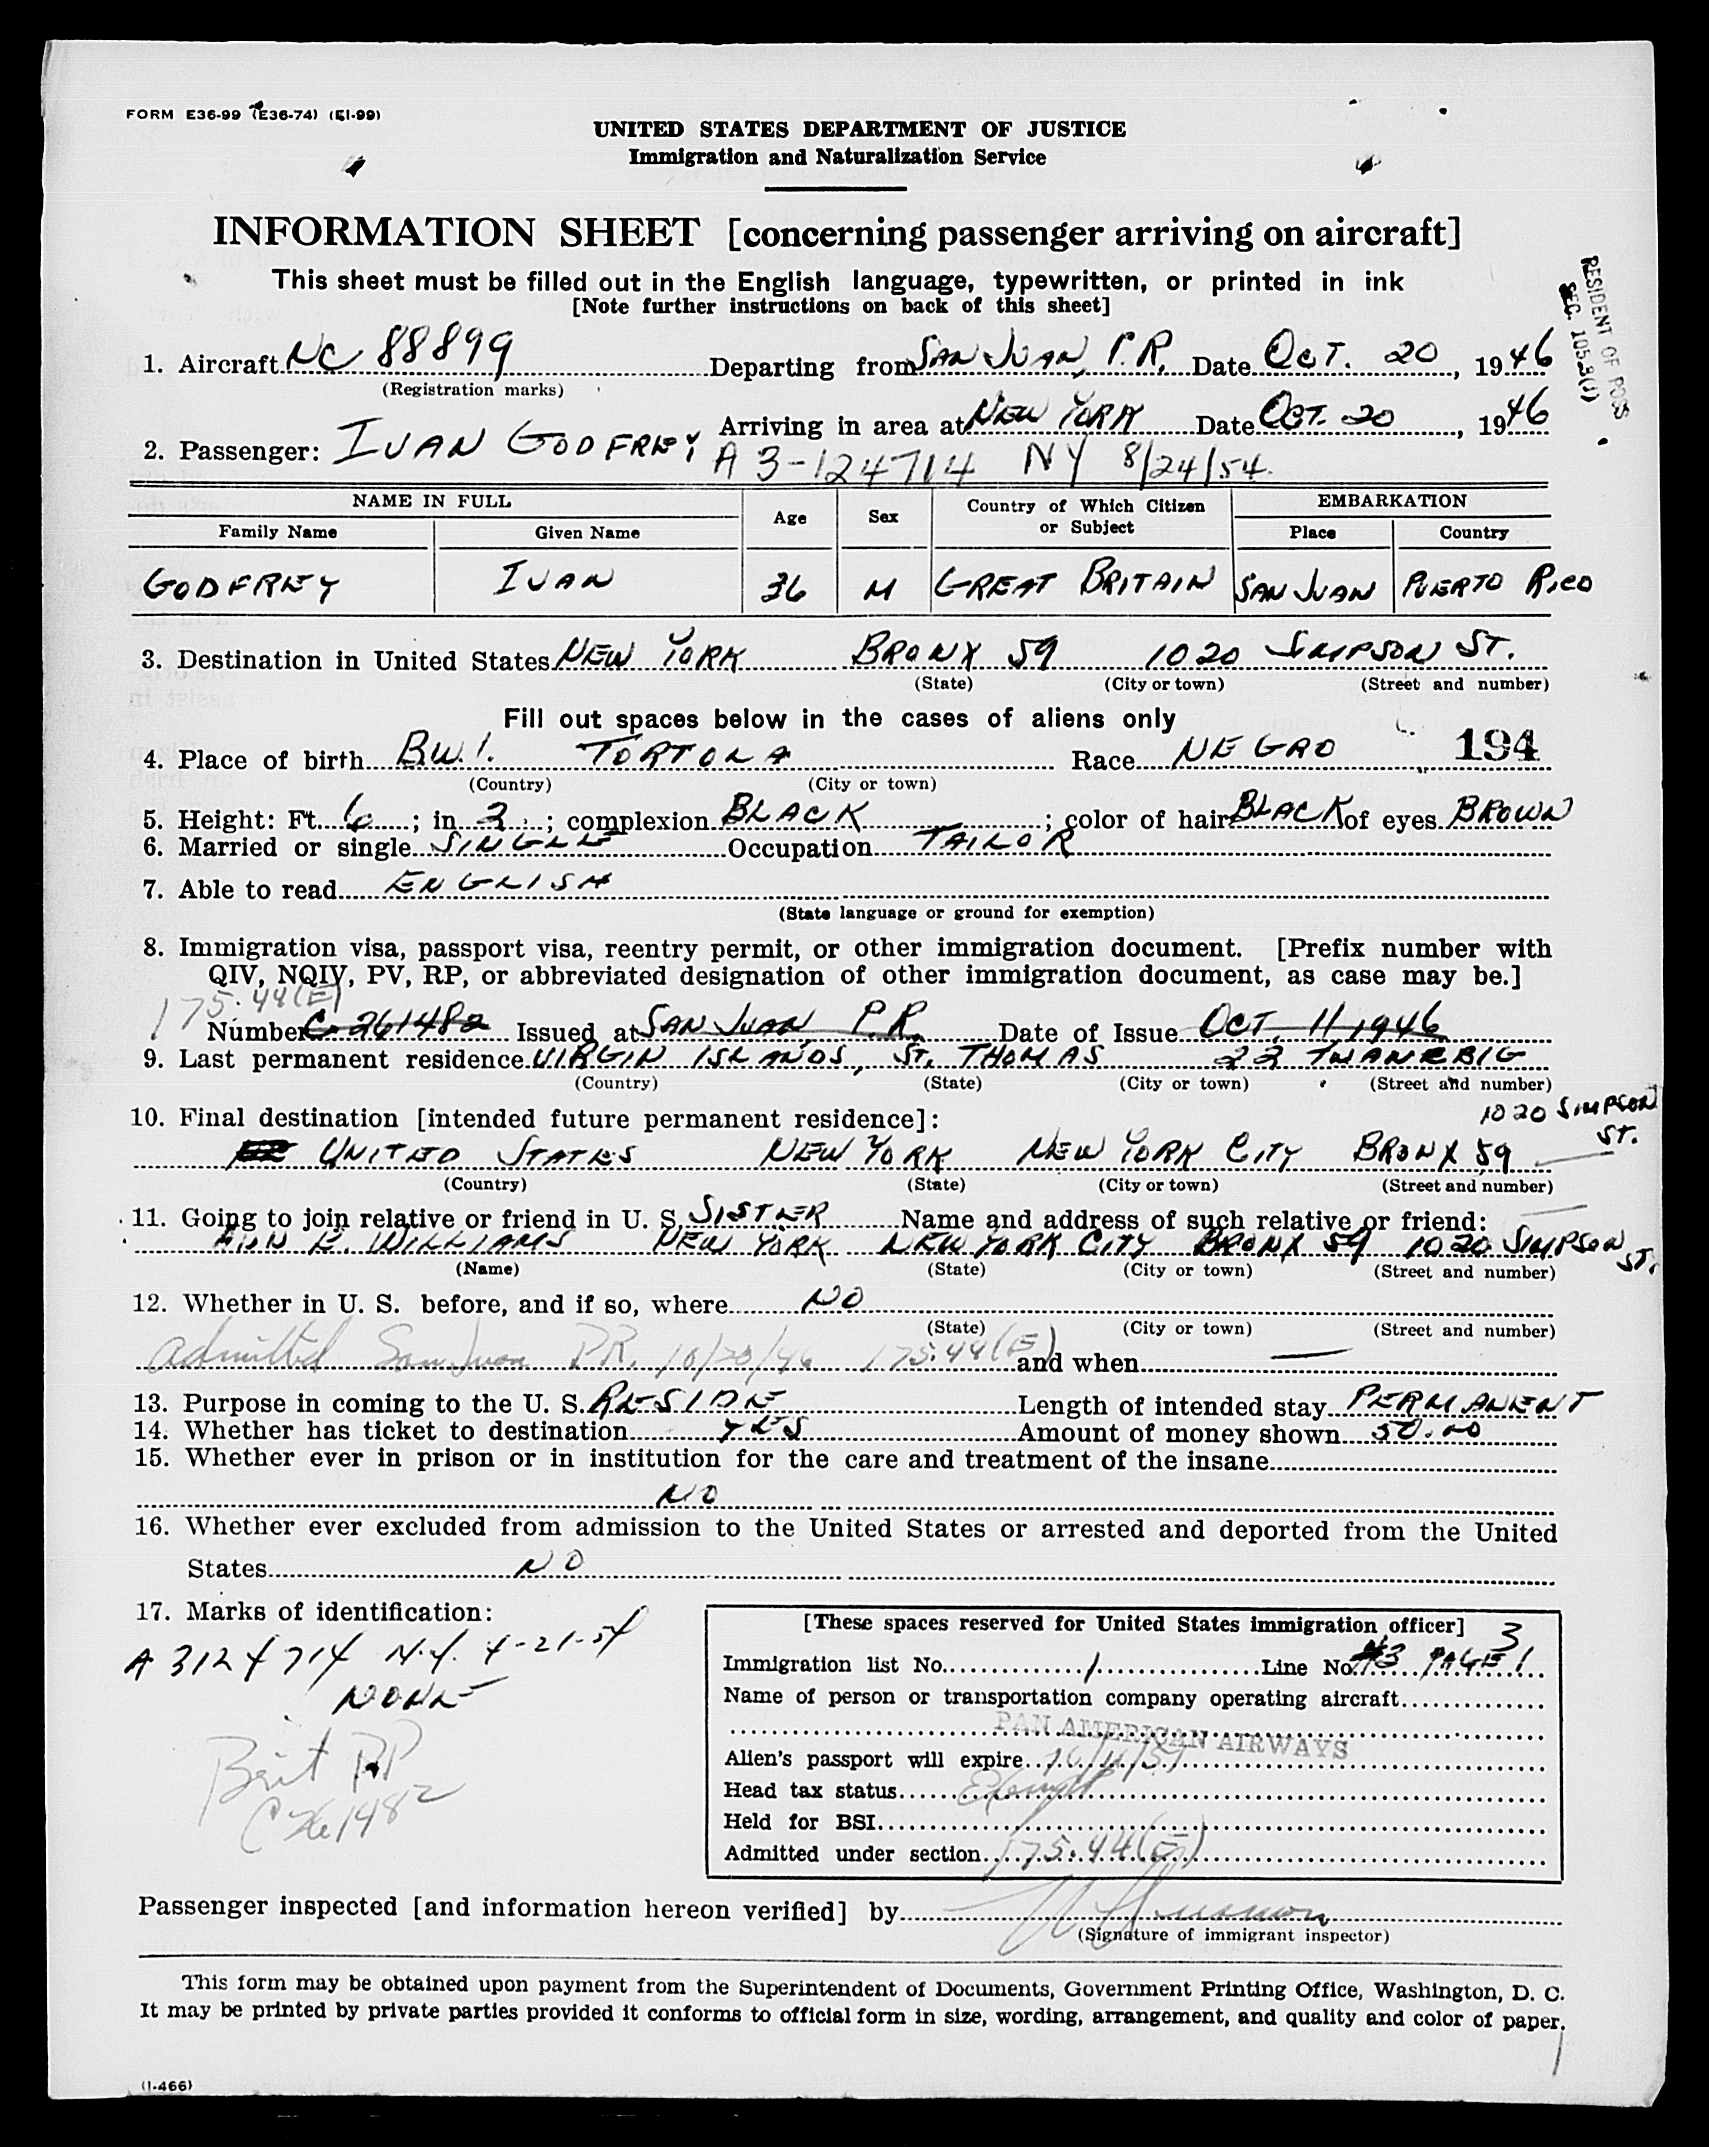 FORM E36-99 (E36-74) (EI-99)
UNITED STATES DEPARTMENT OF JUSTICE
Immigration and Naturalization Service
INFORMATION SHEET [concerning passenger arriving on aircraft]
This sheet must be filled out in the English language, typewritten, or printed in ink
[Note further instructions on back of this sheet]
RESIDENT OF POSS
SEC. 105.3(J)
1. Aircraft NC 88899 Departing from SAN JUAN, P.R. Date OCT. 20, 1946
(Registration marks)
Arriving in area at NEW YORK Date OCT. 20, 1946
2. Passenger: IVAN GODFREY A 3-124714 NY 8/24/54.
NAME IN FULL Age Sex Country of Which Citizen or Subject EMBARKATION
Family Name Given Name Place Country
GODFREY IVAN 36 M GREAT BRITAIN SAN JUAN PUERTO RICO
3. Destination in United States NEW YORK BRONX 59 1020 SIMPSON ST.
(State) (City or town) (Street and number)
Fill out spaces below in the cases of aliens only
194
4. Place of birth B.W.I. TORTOLA Race NEGRO
(Country) (City or town)
5. Height: Ft. 6; in. 2; complexion BLACK; color of hair BLACK of eyes BROWN
6. Married or single SINGLE Occupation TAILOR
7. Able to read ENGLISH
(State language or ground for exemption)
8. Immigration visa, passport visa, reentry permit, or other immigration document. [Prefix number with
QIV, NQIV, PV, RP, or abbreviated designation of other immigration document, as case may be.]
175.44(E)
Number C-261482 Issued at SAN JUAN P.R. Date of Issue OCT. 11, 1946
9. Last permanent residence VIRGIN ISLANDS, ST. THOMAS 22
(Country) (State) (City or town) (Street and number)
10. Final destination [intended future permanent residence]: 1020 SIMPSON ST.
UNITED STATES NEW YORK NEW YORK CITY BRONX 59
(Country) (State) (City or town) (Street and number)
11. Going to join relative or friend in U. S. SISTER Name and address of such relative or friend:
ANN E. WILLIAMS NEW YORK NEW YORK CITY BRONX 59 1020 SIMPSON ST.
(Name) (State) (City or town) (Street and number)
12. Whether in U. S. before, and if so, where NO
(State) (City or town) (Street and number)
Admitted San Juan P.R. 10/20/46 175.44(E) and when —
13. Purpose in coming to the U. S. RESIDE Length of intended stay PERMANENT
14. Whether has ticket to destination YES Amount of money shown 50.00
15. Whether ever in prison or in institution for the care and treatment of the insane
NO
16. Whether ever excluded from admission to the United States or arrested and deported from the United
States NO
17. Marks of identification:
A 3124714 N.Y. 4-21-54
NONE
Brit PP
C 261482
[These spaces reserved for United States immigration officer] 3
Immigration list No. 1 Line No. #3 PAGE 1
Name of person or transportation company operating aircraft
PAN AMERICAN AIRWAYS
Alien's passport will expire 10/11/51
Head tax status Exempt
Held for BSI
Admitted under section 175.44(E)
Passenger inspected [and information hereon verified] by
(Signature of immigrant inspector)
This form may be obtained upon payment from the Superintendent of Documents, Government Printing Office, Washington, D. C.
It may be printed by private parties provided it conforms to official form in size, wording, arrangement, and quality and color of paper.
(I-466)